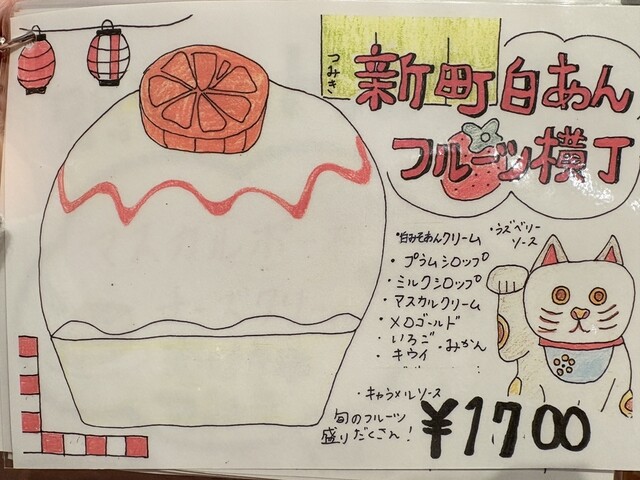 つみき
新町白あん
フルーツ横丁
・白みそあんクリーム
・ラズベリー
ソース
・プラムシロップ
・ミルクシロップ
・マスカルクリーム
・メロゴールド
・いちご
・キウイ
・みかん
・キャラメルソース
旬のフルーツ
盛りだくさん!
¥1700